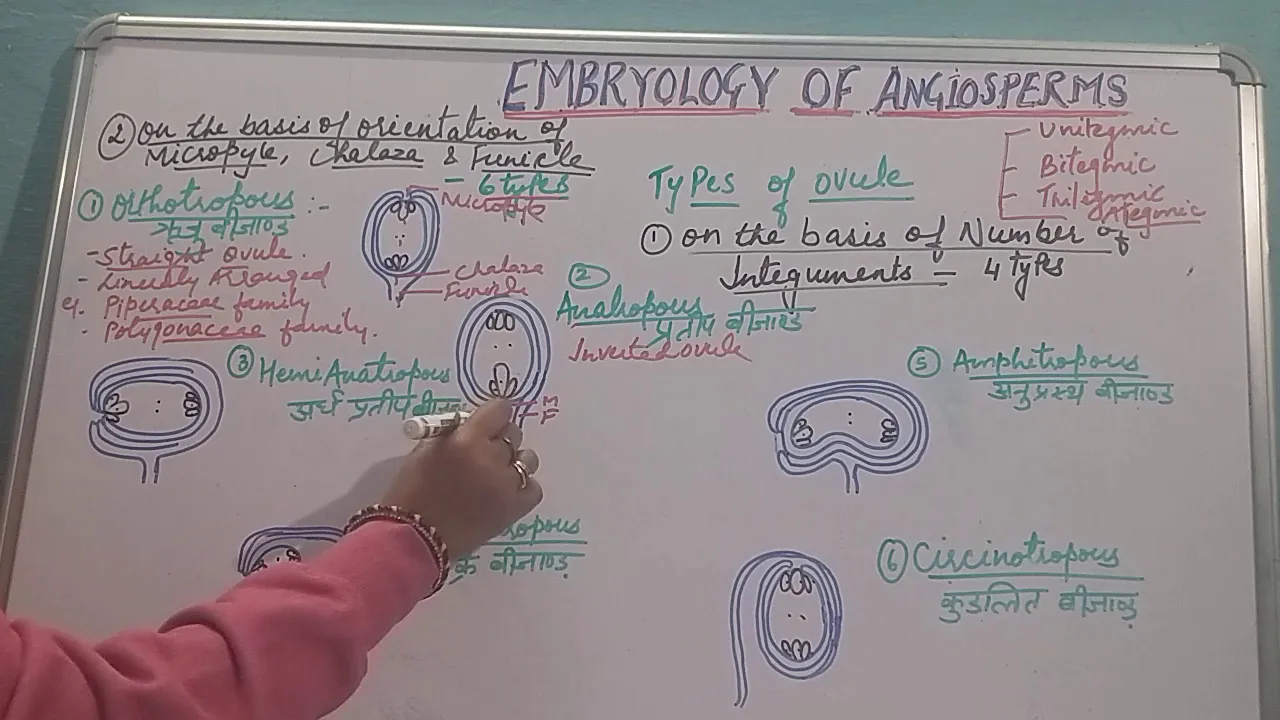 EMBRYOLOGY OF ANGIOSPERMS
② On the basis of orientation of
Micropyle, Chalaza & Funicle
- 6 types
① Orthotropous :-
ऋजु बीजाण्ड
- Straight ovule.
- Linearly Arranged
eg. Piperaceae family
- Polygonaceae family.
Micropyle
Chalaza
Funicle
Types of ovule
Unitegmic
Bitegmic
Ategmic
① on the basis of Number of
Integuments - 4 types
②
Anatropous
प्रतीप बीजाण्ड
Inverted ovule
M
F
③ HemiAnatropous
अर्ध प्रतीप
पous
बीजाण्ड
⑤ Amphitropous
अनुप्रस्थ बीजाण्ड
⑥ Circinotropous
कुंडलित बीजाण्ड